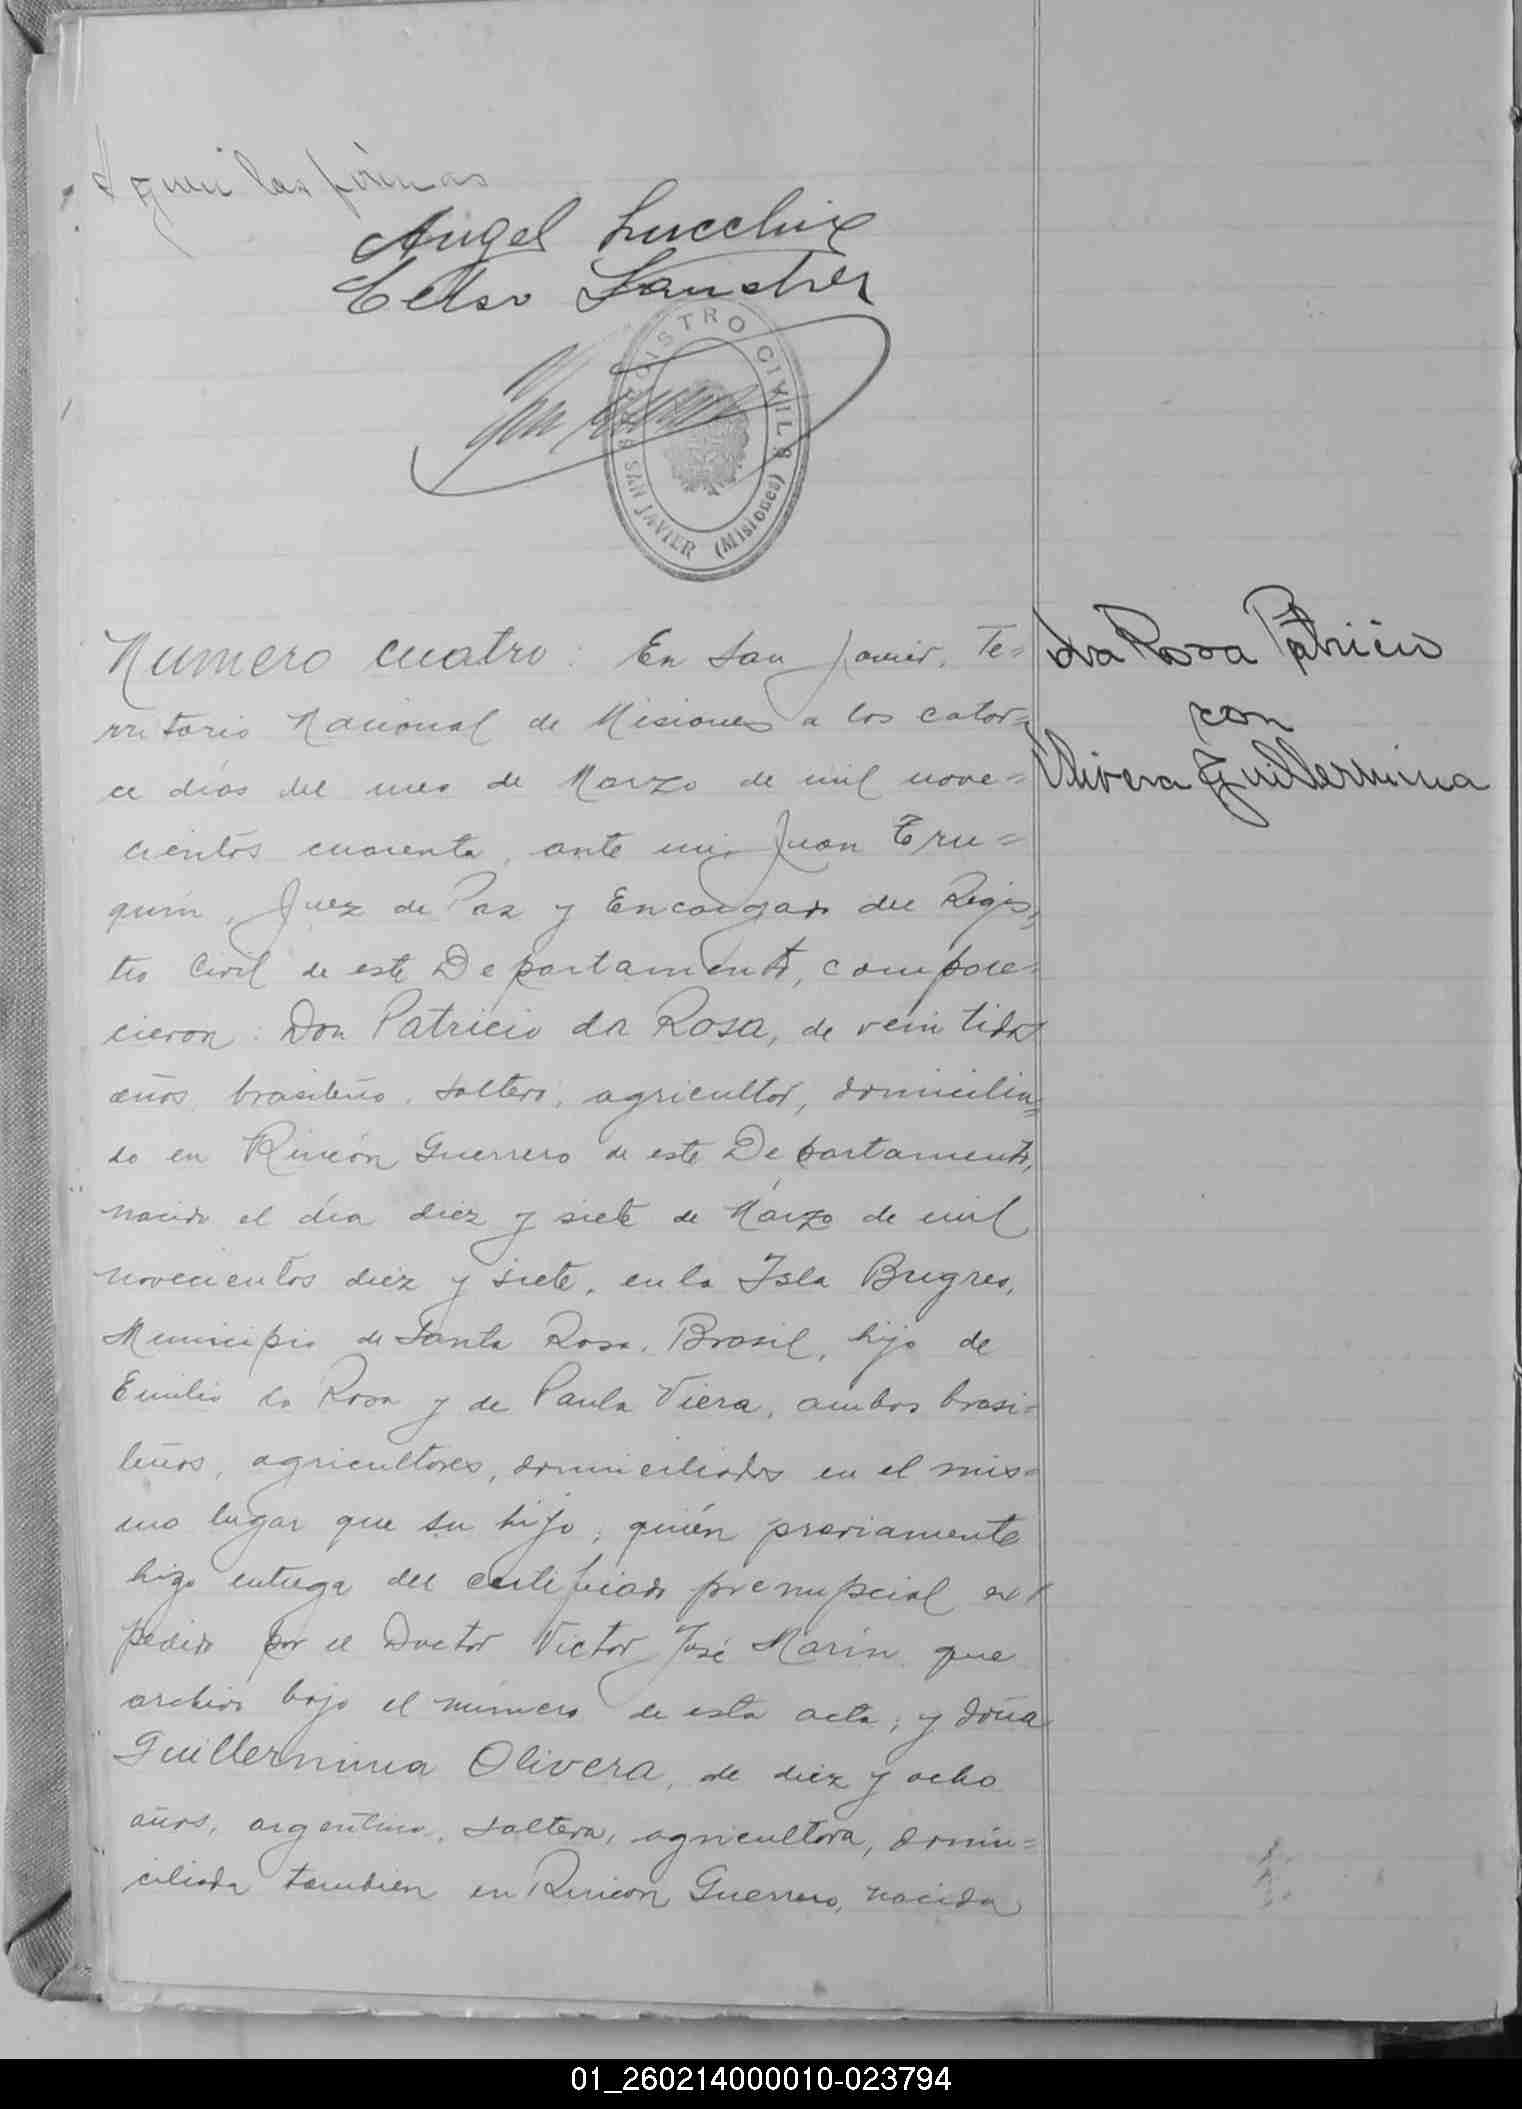 Siguen las firmas
Angel Lucchix
Celso Sanchez
REGISTRO CIVIL
SAN JAVIER (Misiones)
Numero cuatro: En San Javier, Te=
rritorio Nacional de Misiones a los cator=
ce dias del mes de Marzo de mil nove=
cientos cuarenta, ante mi, Juan Tru=
quin, Juez de Paz y Encargado del Regis=
tro Civil de este Departamento, compare=
cieron: Don Patricio da Rosa, de veintidos
años, brasileño, soltero, agricultor, domicilia=
do en Rincón Guerrero de este Departamento,
nacido el día diez y siete de Marzo de mil
novecientos diez y siete, en la Isla Bugres,
Municipio de Santa Rosa, Brasil, hijo de
Emilio da Rosa y de Paula Viera, ambos brasi=
leños, agricultores, domiciliados en el mis=
mo lugar que su hijo, quién previamente
hizo entrega del certificado prenupcial ex=
pedido por el Doctor Victor José Marin que
archivo bajo el número de esta acta; y doña
Guillermina Olivera, de diez y ocho
años, argentina, soltera, agricultora, domi=
ciliada tambien en Rincon Guerrero, nacida
da Rosa Patricio
con
Olivera Guillermina
01_260214000010-023794